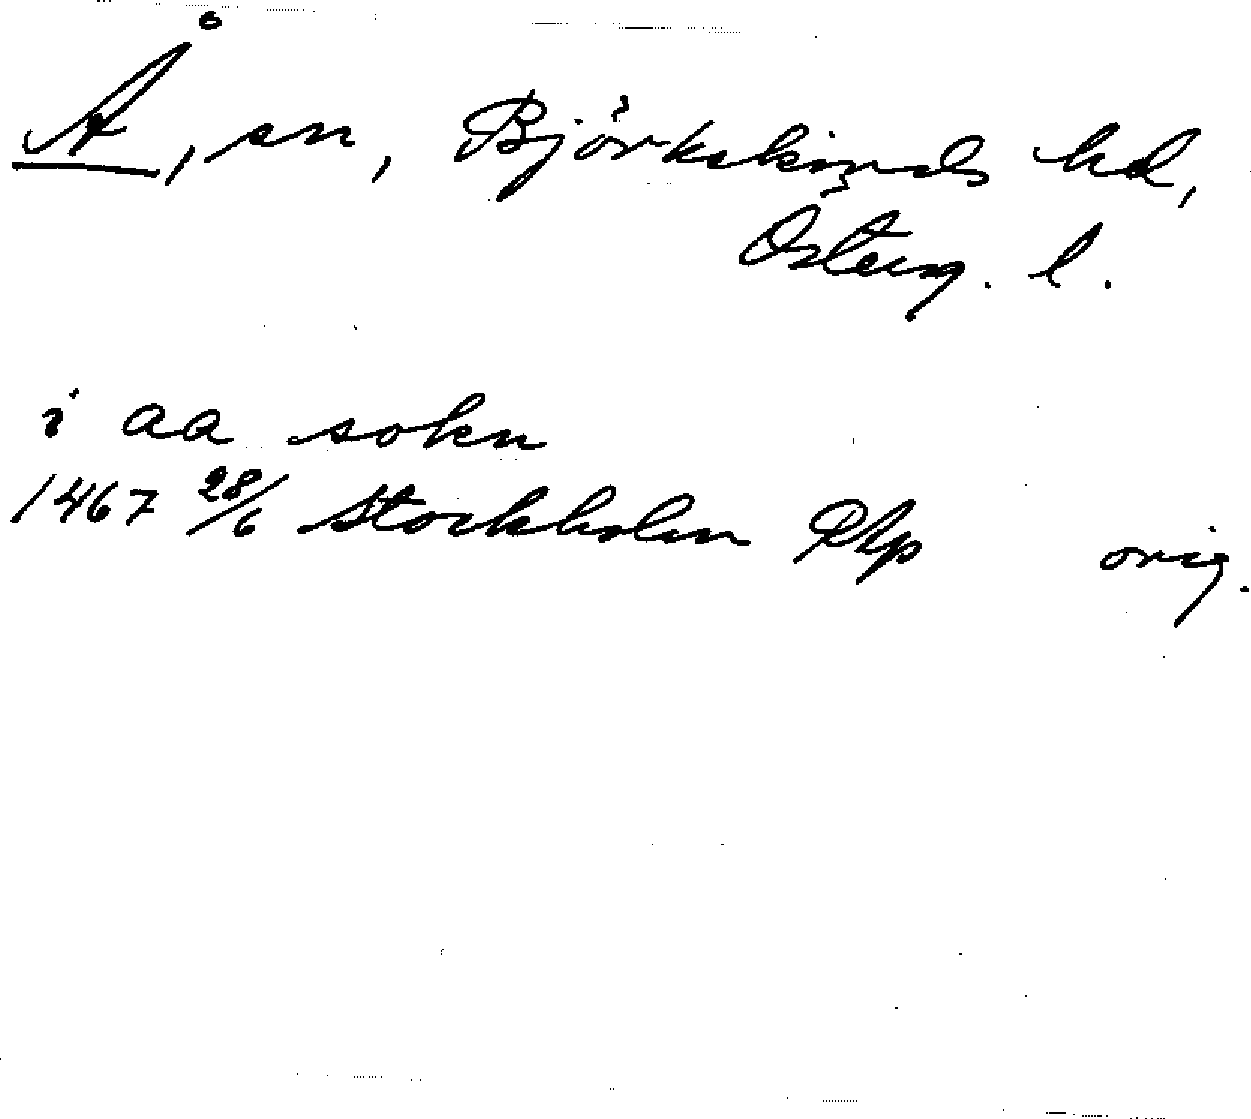 Å, sn, Björkekinds hd,
Österg. l.
i aa sokn
1467 28/6 Stockholm RAp orig.